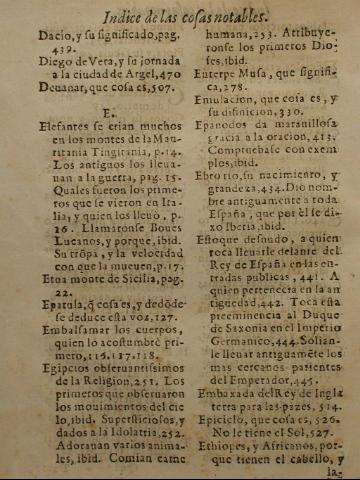 Indice de las cosas notables.
Dacio, y su significado, pag.
439.
Diego de Vera, y su jornada
a la ciudad de Argel, 470
Deuanar, que cosa es, 507.
E.
Elefantes se crian muchos
en los montes de la Mau
ritania Tingitania, p. 14.
Los antiguos los lleua-
uan a la guerra, pag. 15.
Quales fueron los prime-
ros que se vieron en Ita-
lia, y quien los lleuò, p.
16. Llamaronse Boues
Lucanos, y porque, ibid.
Su trõpa, y la velocidad
con que la mueuen, p. 17.
Etna monte de Sicilia, pag.
22.
Epatula, q̃ cosa es, y de dõde
se deduce esta voz, 127.
Embalsamar los cuerpos,
quien lo acostumbrè pri-
mero, 116. 117. 118.
Egipcios obseruantissimos
de la Religion, 251. Los
primeros que obseruaron
los mouimientos del cie
lo, ibid. Supersticiosos, y
dados a la Idolatria, 252.
Adorauan varios anima-
les, ibid. Comian carne
humana, 253. Atribuye-
ronse los primeros Dio-
ses, ibid.
Euterpe Musa, que signifi-
ca, 278.
Emulacion, que cosa es, y
su difinicion, 330.
Epanodos da marauillosa
gracia a la oracion, 413.
Compruebase con exem
plos, ibid.
Ebro rio, su nacimiento, y
grandeza, 434. Dio nom-
bre antiguamente a toda
España, que por èl se di-
xo Iberia, ibid.
Estoque desnudo, a quien
toca lleuarle delante del
Rey de España en las en-
tradas publicas, 441. A
quien pertenecia en la an
tiguedad, 442. Toca esta
preeminencia al Duque
de Saxonia en el Imperio
Germanico, 444. Solian-
le lleuar antiguamẽte los
mas cercanos parientes
del Emperador, 445.
Embaxada del Rey de Ingla
terra para las pazes, 514.
Epiciclo, que cosa es, 526.
No le tiene el Sol, 527.
Ethiopes, y Africanos, por-
que tienen el cabello, y
la-